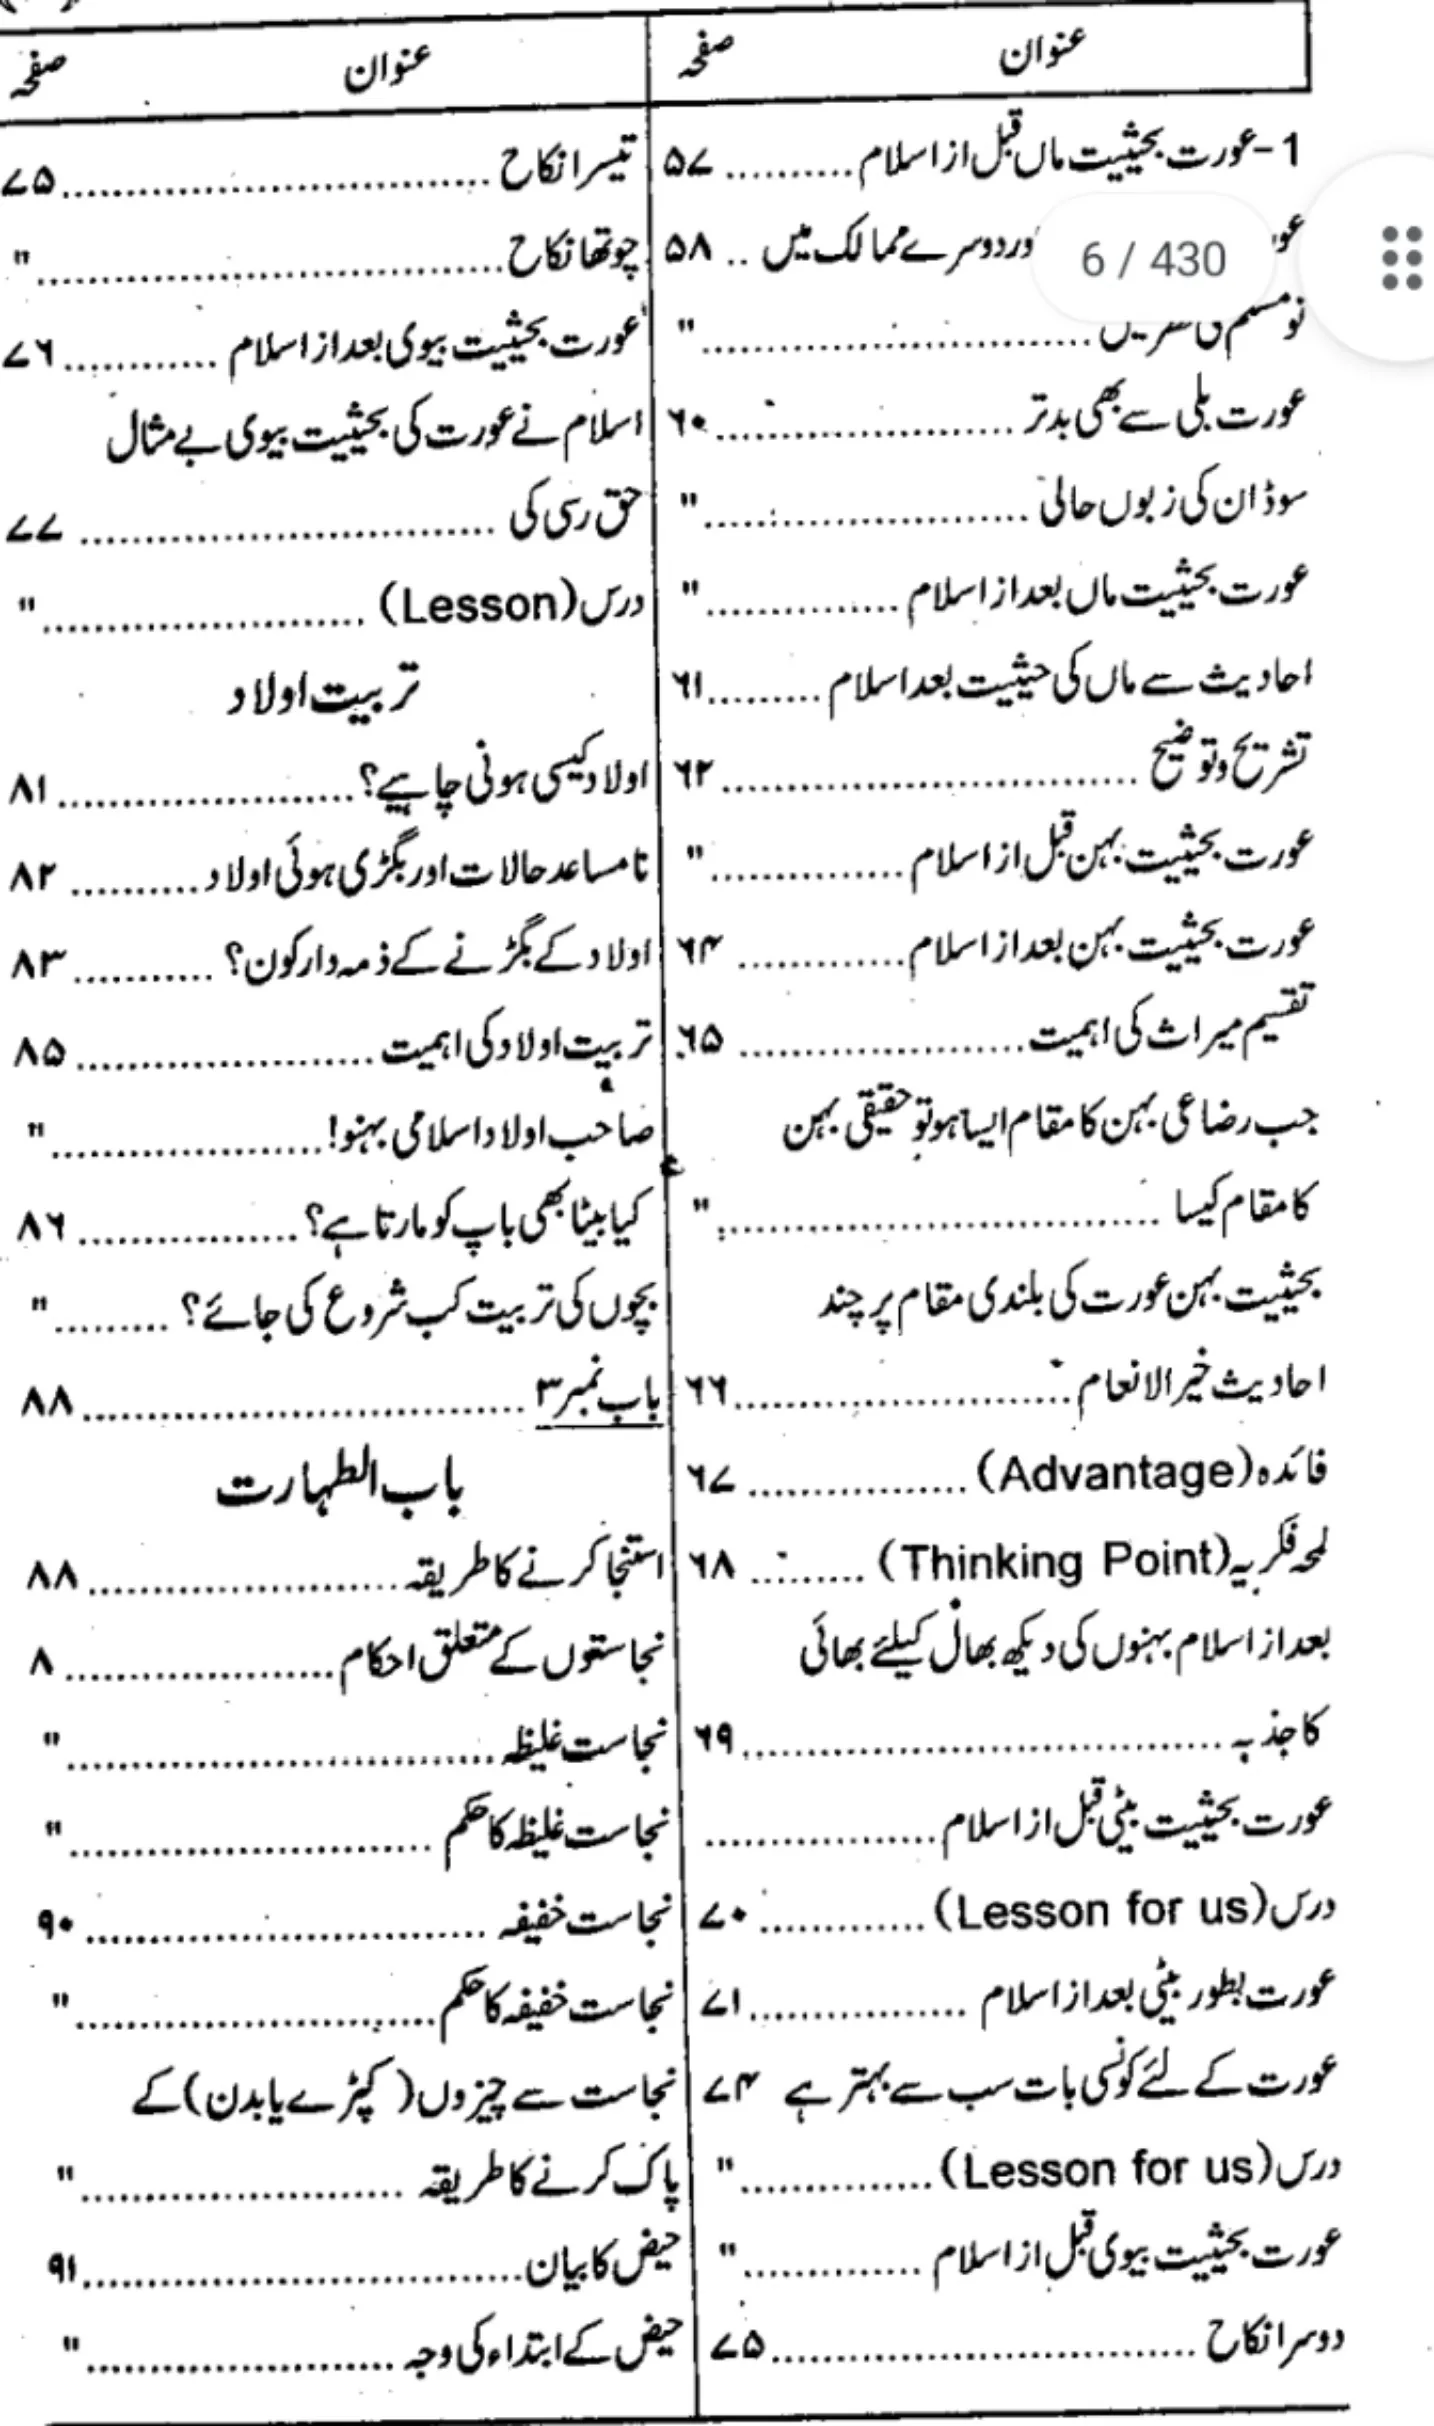 عنوان صفحہ
1-عورت بحیثیت ماں قبل از اسلام .......... ۵۷
اور دوسرے ممالک میں .. ۵۸
"
عورت بلی سے بھی بدتر ....................... ۶۰
سوڈان کی زبوں حالی ......................... "
عورت بحیثیت ماں بعد از اسلام ............... "
احادیث سے ماں کی حیثیت بعد اسلام ......... ۶۱
تشریح و توضیح ................................ ۶۲
عورت بحیثیت بہن قبل از اسلام ............... "
عورت بحیثیت بہن بعد از اسلام ............. ۶۴
تقسیم میراث کی اہمیت ...................... ۶۵
جب رضاعی بہن کا مقام ایسا ہو تو حقیقی بہن
کا مقام کیسا .................................. "
بحیثیت بہن عورت کی بلندی مقام پر چند
احادیث خیر الانعام .......................... ۶۶
فائدہ (Advantage) ................. ۶۷
لمحہ فکریہ (Thinking Point) ......... ۶۸
بعد از اسلام بہنوں کی دیکھ بھال کیلئے بھائی
کا جذبہ ..................................... ۶۹
عورت بحیثیت بیٹی قبل از اسلام ..................
درس (Lesson for us) ............. ۷۰
عورت بطور بیٹی بعد از اسلام ................. ۷۱
عورت کے لئے کونسی بات سب سے بہتر ہے ۷۴
درس (Lesson for us) ............... "
عورت بحیثیت بیوی قبل از اسلام .............. "
دوسرا نکاح ................................. ۷۵
عنوان صفحہ
تیسرا نکاح ................................. ۷۵
چوتھا نکاح .................................... "
عورت بحیثیت بیوی بعد از اسلام ............ ۷۶
اسلام نے عورت کی بحیثیت بیوی بے مثال
حق رسی کی ................................ ۷۷
درس (Lesson) ......................... "
تربیت اولاد
اولاد کیسی ہونی چاہیے؟ ....................... ۸۱
نامساعد حالات اور بگڑی ہوئی اولاد .......... ۸۲
اولاد کے بگڑنے کے ذمہ دار کون؟ ........... ۸۳
تربیت اولاد کی اہمیت ....................... ۸۵
صاحب اولاد اسلامی بہنو! ..................... "
کیا بیٹا بھی باپ کو مارتا ہے؟ ................. ۸۶
بچوں کی تربیت کب شروع کی جائے؟ ......... "
باب نمبر ۳ .................................. ۸۸
باب الطہارت
استنجا کرنے کا طریقہ ........................ ۸۸
نجاستوں کے متعلق احکام ..................... ۸
نجاست غلیظہ ................................. "
نجاست غلیظہ کا حکم ............................ "
نجاست خفیفہ ............................... ۹۰
نجاست خفیفہ کا حکم ........................... "
نجاست سے چیزوں (کپڑے یا بدن) کے
پاک کرنے کا طریقہ ......................... "
حیض کا بیان .................................. ۹۱
حیض کے ابتداء کی وجہ ........................ "
6 / 430